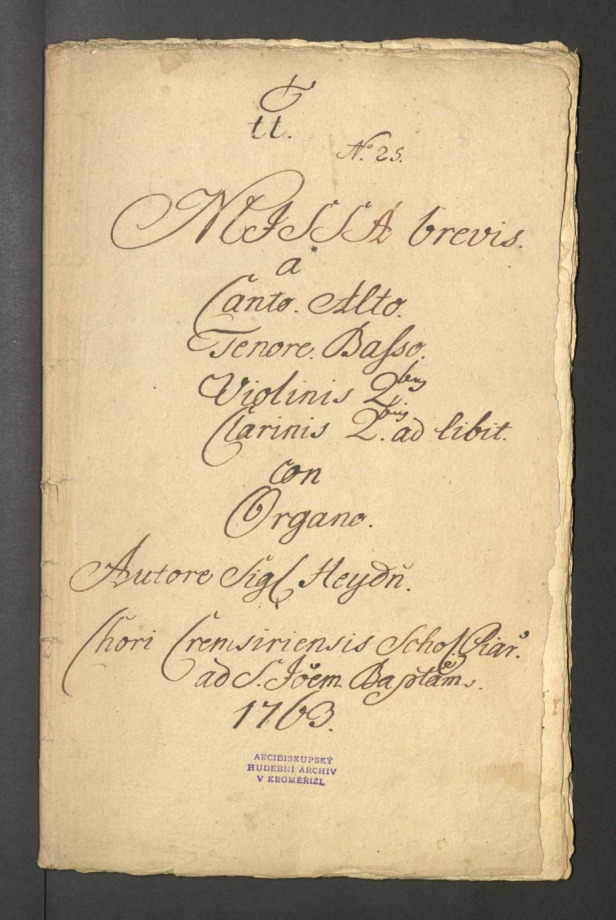 tt.
No. 25.
MISSA brevis.
a
Canto. Alto.
Tenore. Basso.
Violinis 2bus
Clarinis 2.bus ad libit.
con
Organo.
Autore Sigl Heydn̄.
Chori Cremsiriensis Schol. Piar.
ad S. Joem Baptam.
1763.
ARCIBISKUPSKÝ
HUDEBNÍ ARCHIV
V KROMĚŘÍŽI.